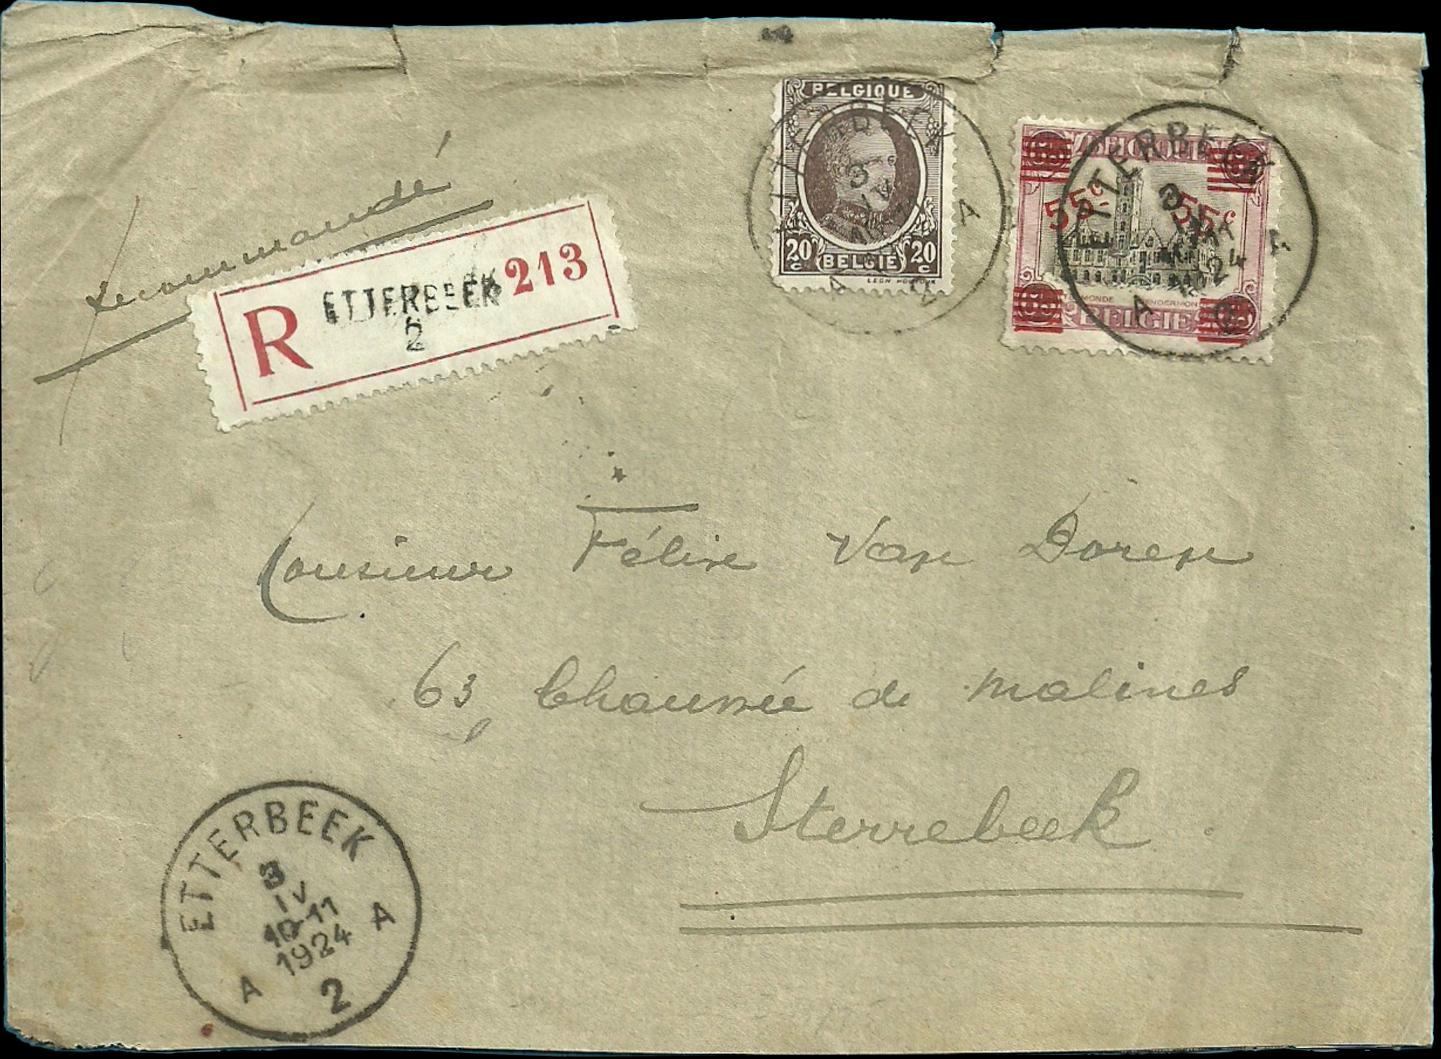 recommandé
R ETTERBEEK 213
2
BELGIQUE
20 c 20 c
BELGIË
BELGIQUE
55c 55c
BELGIE
ETTERBEEK
A A
2
Monsieur Félix Van Doren
63 Chaussée de Malines
Sterrebeek
ETTERBEEK
3
IV
10-11
1924
A A
2